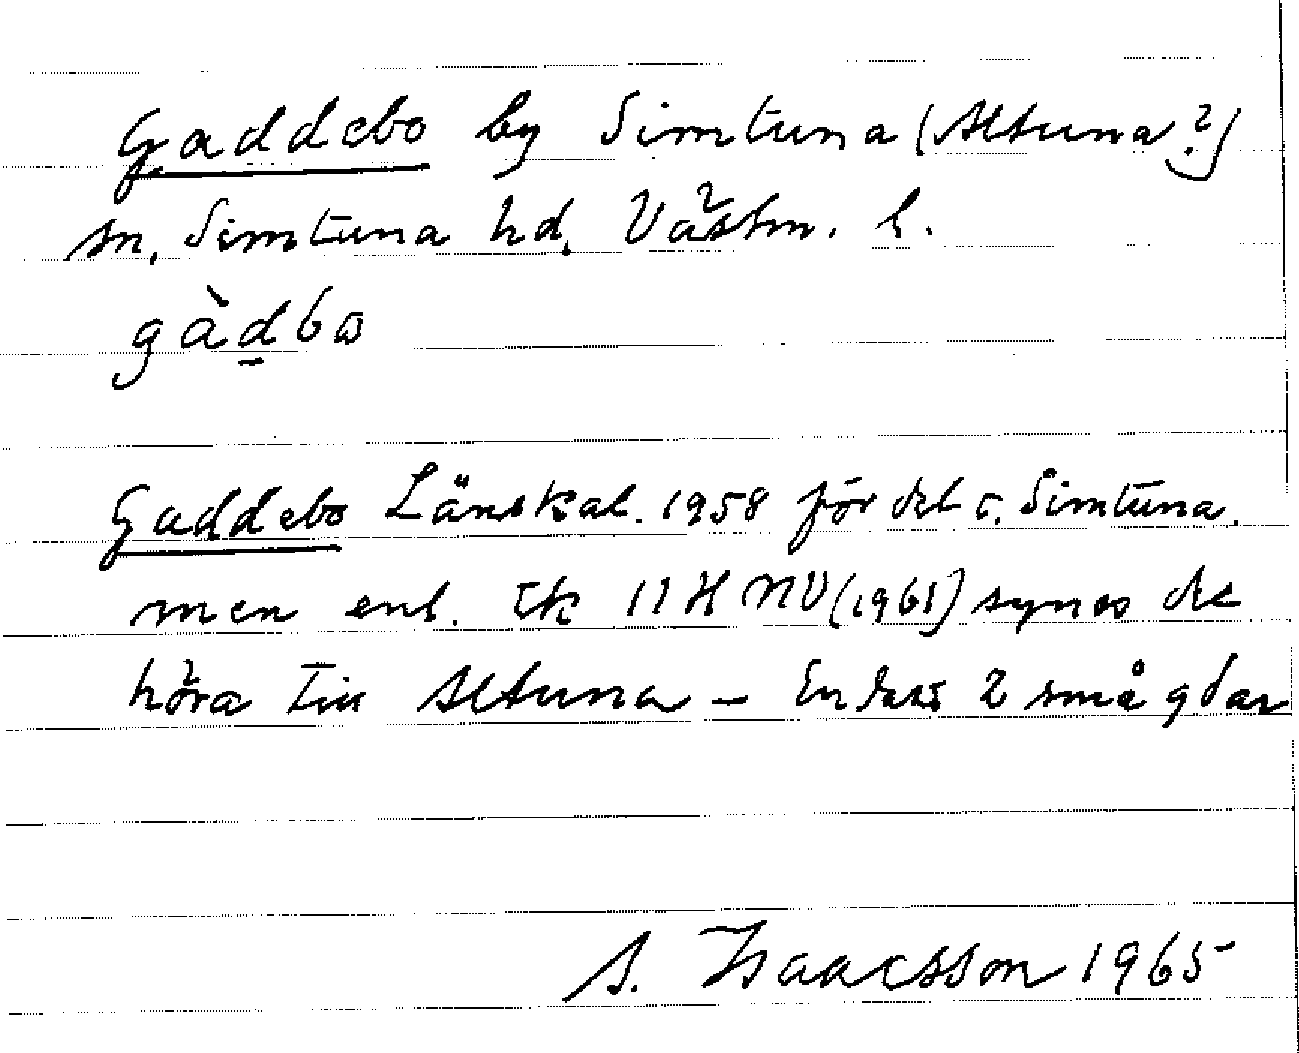 Gaddebo by Simtuna (Altuna?)
sn, Simtuna hd, Västm. l.
gàd̲bɷ
Gaddebo Länskal. 1958 för det t. Simtuna.
men enl. TK 11H NV (1961) synes de
höra till Altuna – Endast 2 små gdar
A. Isaacsson 1965